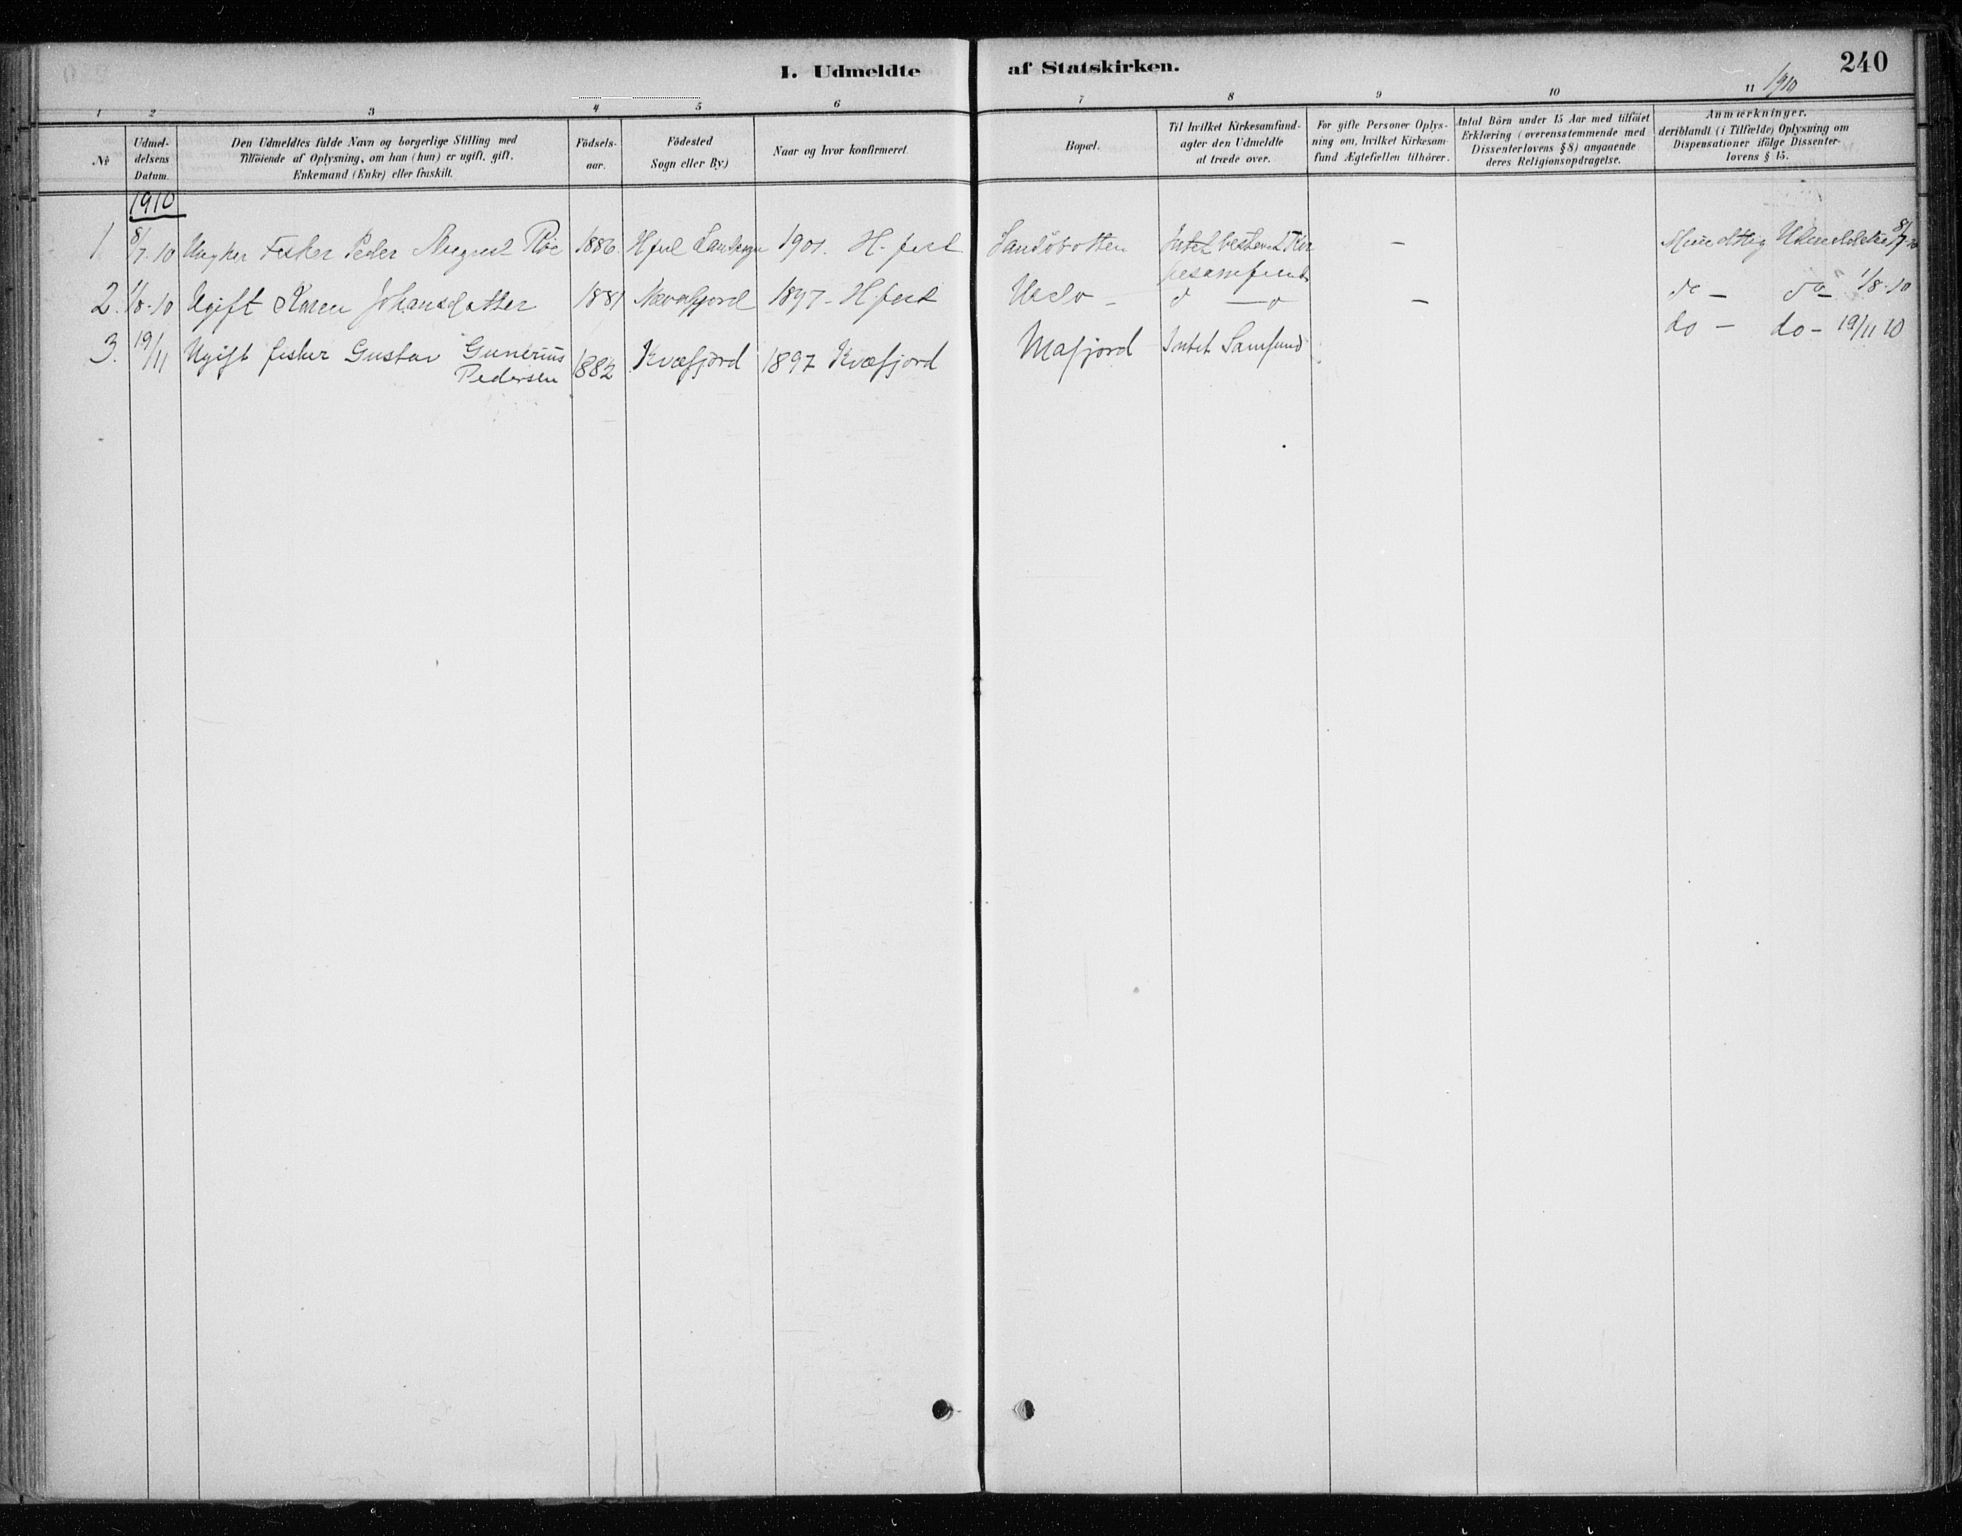 I. Udmeldte af Statskirken.
240
1910
1 2 3 4 5 6 7 8 9 10 11
No
Udmeldelsens Datum.
Den Udmeldtes fulde Navn og borgerlige Stilling med
Tilföiende af Oplysning, om han (hun) er ugift, gift,
Enkemand (Enke) eller fraskilt.
Födselsaar.
Födested
Sogn eller By)
Naar og hvor konfirmeret.
Bopæl.
Til hvilket Kirkesamfund
agter den Udmeldte
at træde over.
For gifte Personer Oplys-
ning om, hvilket Kirkesam-
fund Ægtefællen tilhörer.
Antal Börn under 15 Aar med tilföiet
Erklæring (overensstemmende med
Dissenterlovens § 8) angaaende
deres Religionsopdragelse.
Anmærkninger,
deriblandt (i Tilfælde) Oplysning om
Dispensationer ifölge Dissenter-
lovens § 15.
1910
1 8/7.10 Ungkar Fisker Peder August 1886 1901. H-fest Sandöbotten Intet bestemt Kir — Mundtlig Udmeldelse 8/7.10
kesamfund
2. 1/8-10 Ugift Karen Johansdatter 1881 1897- H-fest d — o — do — do — 1/8.10
3. 19/11 Ugift fisker Gustav Gunerius 1882 Kvæfjord 1897 Kvæfjord Mafjord Intet Samfund do — do — 19/11 10
Pedersen